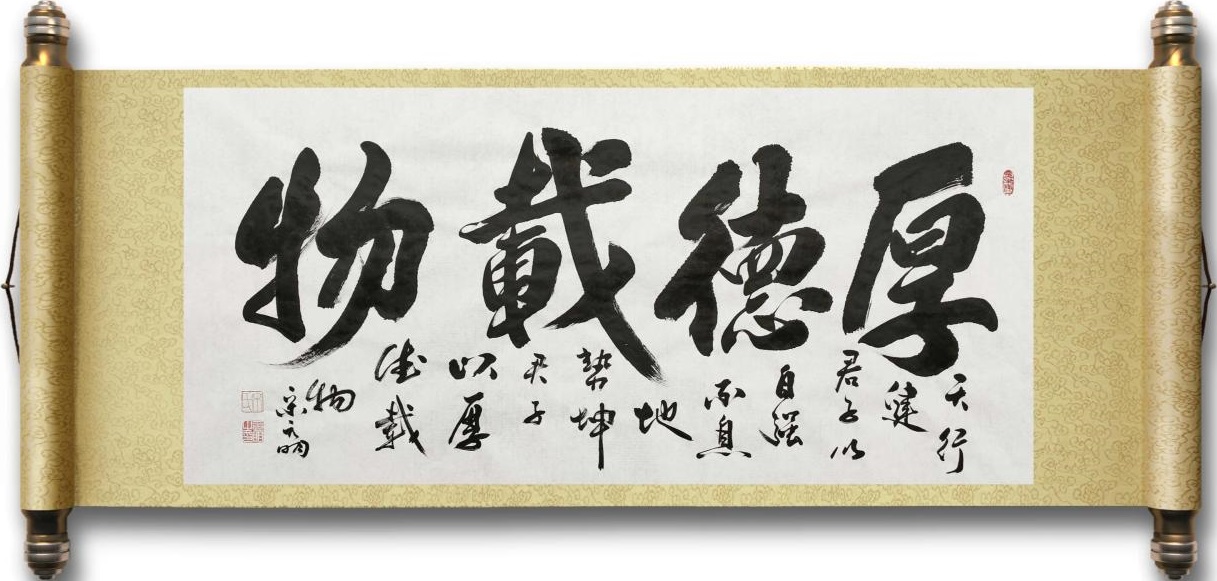 厚德載物
天行
健
君子以
自强
不息
地
勢坤
君子
以厚
德載
物